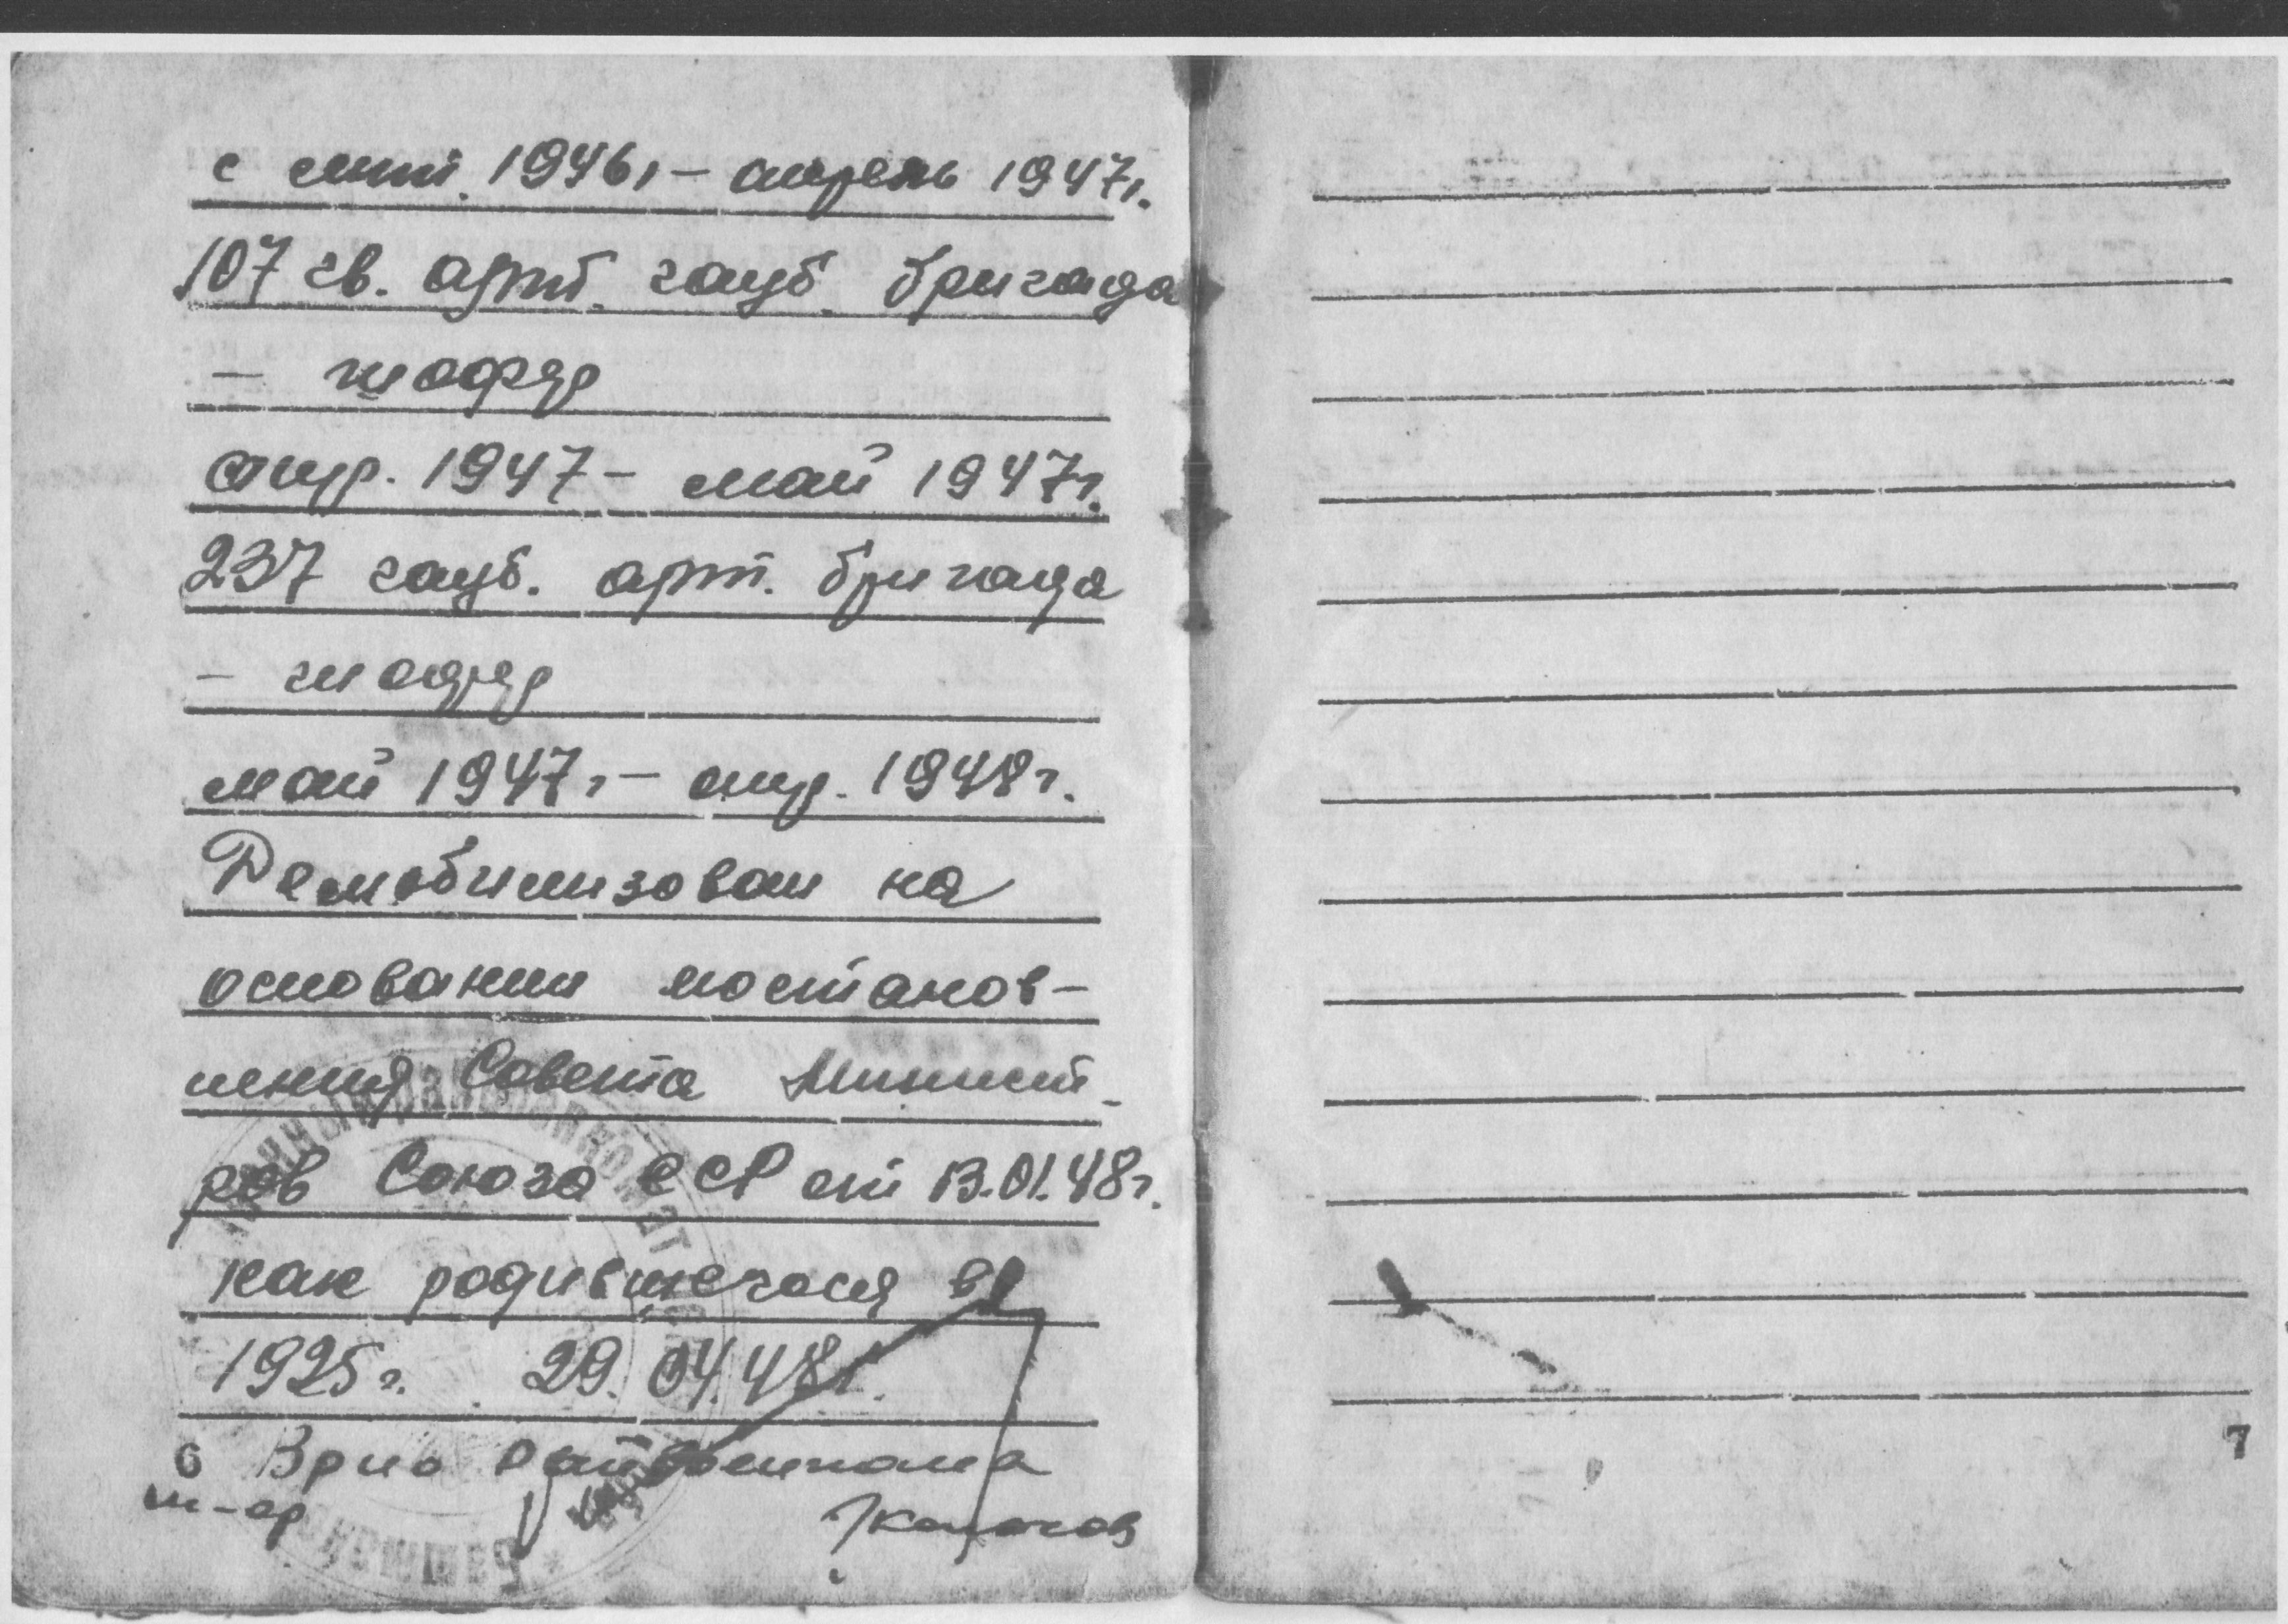 с сент. 1946г – апрель 1947г.
107 гв. арт. гауб. бригада
– шофер
апр. 1947 – май 1947г.
237 гауб. арт. бригада
– шофер
май 1947г – апр. 1948г.
Демобилизован на
основании постанов-
ления Совета Минист-
ров Союза ССР от 13.01.48г.
как родившегося в
1925г. 29.04.48г.
6 Врио Райвоенкома
м-ор
7